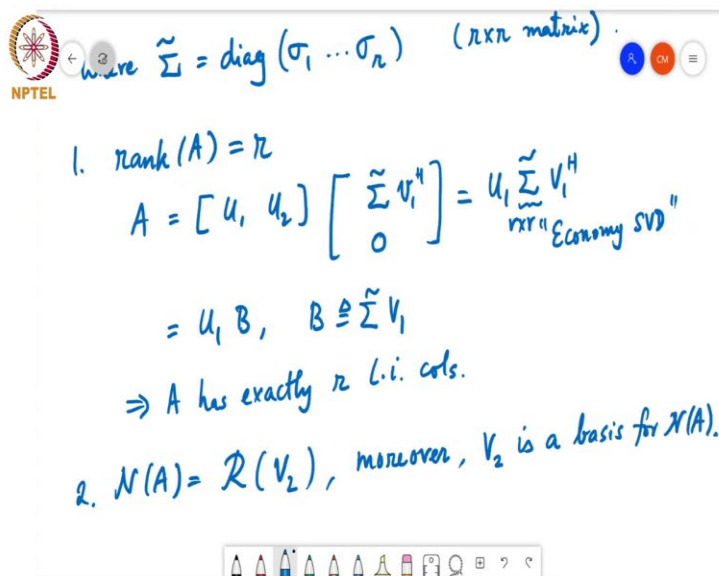 where Σ̃ = diag (σ₁ ... σᵣ) (rxr matrix).
NPTEL
CM
1. rank (A) = r
A = [U₁ U₂] [Σ̃ V₁ᴴ
0] = U₁ Σ̃ V₁ᴴ
rxr "Economy SVD"
= U₁ B, B ≜ Σ̃ V₁
⇒ A has exactly r l.i. cols.
2. N(A) = R(V₂), moreover, V₂ is a basis for N(A).